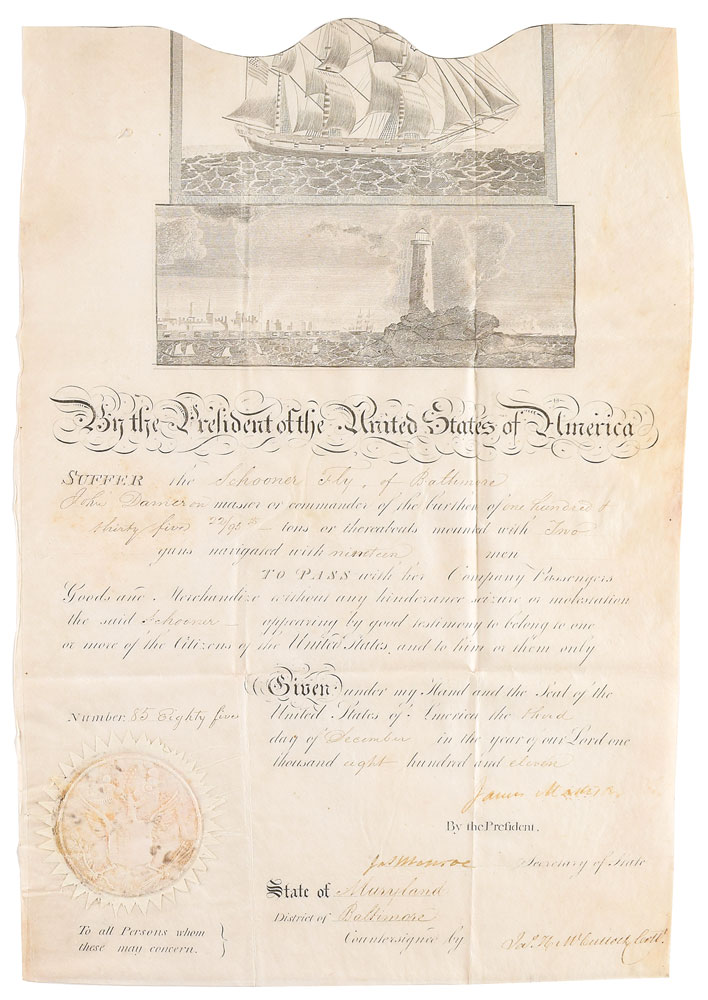 By the President of the United States of America
SUFFER the Schooner Fly, of Baltimore
John Dameron master or commander of the burthen of one hundred &
thirty five /95 ths tons or thereabouts mounted with Two
guns navigated with nineteen men
TO PASS with her Company Passengers
Goods and Merchandize without any hinderance seizure or molestation
the said Schooner appearing by good testimony to belong to one
or more of the Citizens of the United States, and to him or them only
Given under my Hand and the Seal of the
Number 85 Eighty five United States of America the third
day of December in the year of our Lord one
thousand eight hundred and eleven
James Madison
By the President,
Jas Monroe Secretary of State
State of Maryland
District of Baltimore
To all Persons whom
these may concern.
Countersigned by Jas. H. McCulloch Collr.